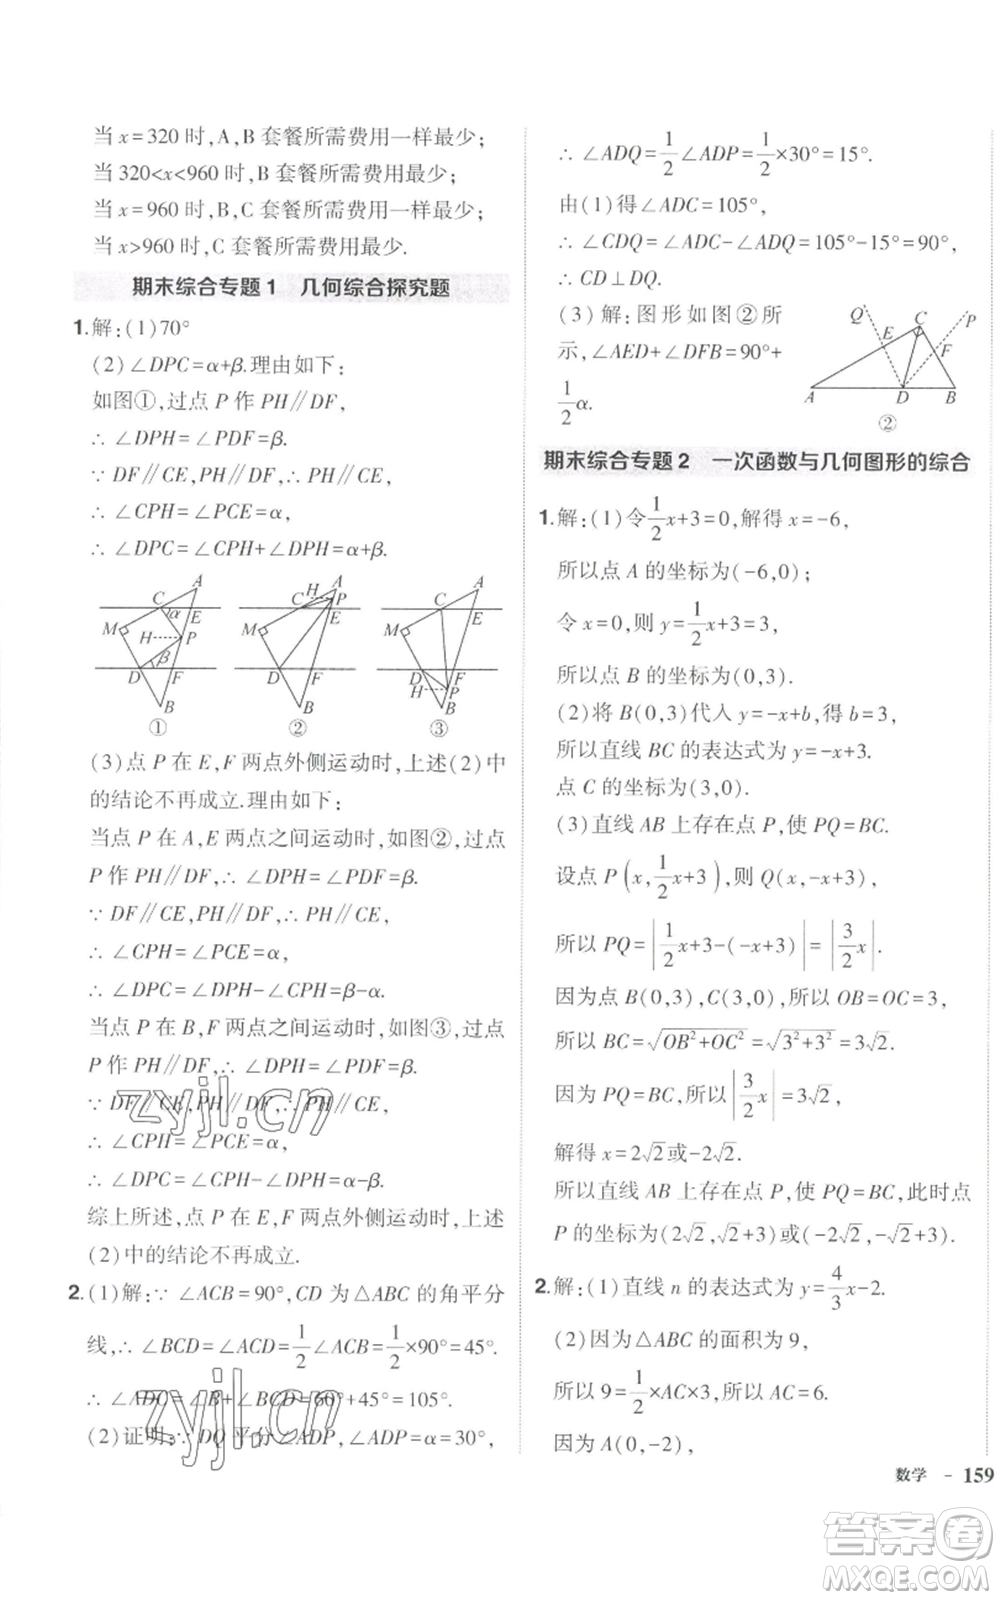 当 x=320 时,A,B 套餐所需费用一样最少;
当 320<x<960 时,B 套餐所需费用最少;
当 x=960 时,B,C 套餐所需费用一样最少;
当 x>960 时,C 套餐所需费用最少.
期末综合专题 1 几何综合探究题
1.解:(1)70°
(2)∠DPC=α+β.理由如下:
如图①,过点 P 作 PH∥DF,
∴ ∠DPH=∠PDF=β.
∵ DF∥CE,∴ PH∥CE,
∴ ∠CPH=∠PCE=α,
∴ ∠DPC=∠CPH+∠DPH=α+β.
A C α E M H P D β F B ①
A H P C E M D F B ②
A C E M D F H P B ③
(3)点 P 在 E,F 两点外侧运动时,上述(2)中
的结论不再成立.理由如下:
当点 P 在 A,E 两点之间运动时,如图②,过点
P 作 PH∥DF,∴ ∠DPH=∠PDF=β.
∵ DF∥CE,PH∥DF,∴ PH∥CE,
∴ ∠CPH=∠PCE=α,
∴ ∠DPC=∠DPH-∠CPH=β-α.
当点 P 在 B,F 两点之间运动时,如图③,过点
P 作 PH∥DF,∴ ∠DPH=∠PDF=β.
∵ DF∥CE,PH∥DF,∴ PH∥CE,
∴ ∠CPH=∠PCE=α,
∴ ∠DPC=∠CPH-∠DPH=α-β.
综上所述,点 P 在 E,F 两点外侧运动时,上述
(2)中的结论不再成立.
2.(1)解:∵ ∠ACB=90°,CD 为△ABC 的角平分
线,∴ ∠BCD=∠ACD=1/2∠ACB=1/2×90°=45°.
∴ ∠ADC=∠B+∠BCD=60°+45°=105°.
(2)证明:∵ DQ 平分∠ADP,∠ADP=α=30°,
∴ ∠ADQ=1/2∠ADP=1/2×30°=15°.
由(1)得∠ADC=105°,
∴ ∠CDQ=∠ADC-∠ADQ=105°-15°=90°,
∴ CD⊥DQ.
(3)解:图形如图②所
示,∠AED+∠DFB=90°+
1/2α.
Q C P E F A D B ②
期末综合专题 2 一次函数与几何图形的综合
1.解:(1)令1/2x+3=0,解得 x=-6,
所以点 A 的坐标为(-6,0);
令 x=0,则 y=1/2x+3=3,
所以点 B 的坐标为(0,3).
(2)将 B(0,3)代入 y=-x+b,得 b=3,
所以直线 BC 的表达式为 y=-x+3.
点 C 的坐标为(3,0).
(3)直线 AB 上存在点 P,使 PQ=BC.
设点 P(x,1/2x+3),则 Q(x,-x+3),
所以 PQ=|1/2x+3-(-x+3)|=|3/2x|.
因为点 B(0,3),C(3,0),所以 OB=OC=3,
所以 BC=√(OB²+OC²)=√(3²+3²)=3√2.
因为 PQ=BC,所以|3/2x|=3√2,
解得 x=2√2或-2√2.
所以直线 AB 上存在点 P,使 PQ=BC,此时点
P 的坐标为(2√2,√2+3)或(-2√2,-√2+3).
2.解:(1)直线 n 的表达式为 y=4/3x-2.
(2)因为△ABC 的面积为 9,
所以 9=1/2×AC×3,所以 AC=6.
因为 A(0,-2),
数学 - 159
zyjl.cn
zyjl.cn
答案卷
MXQE.COM